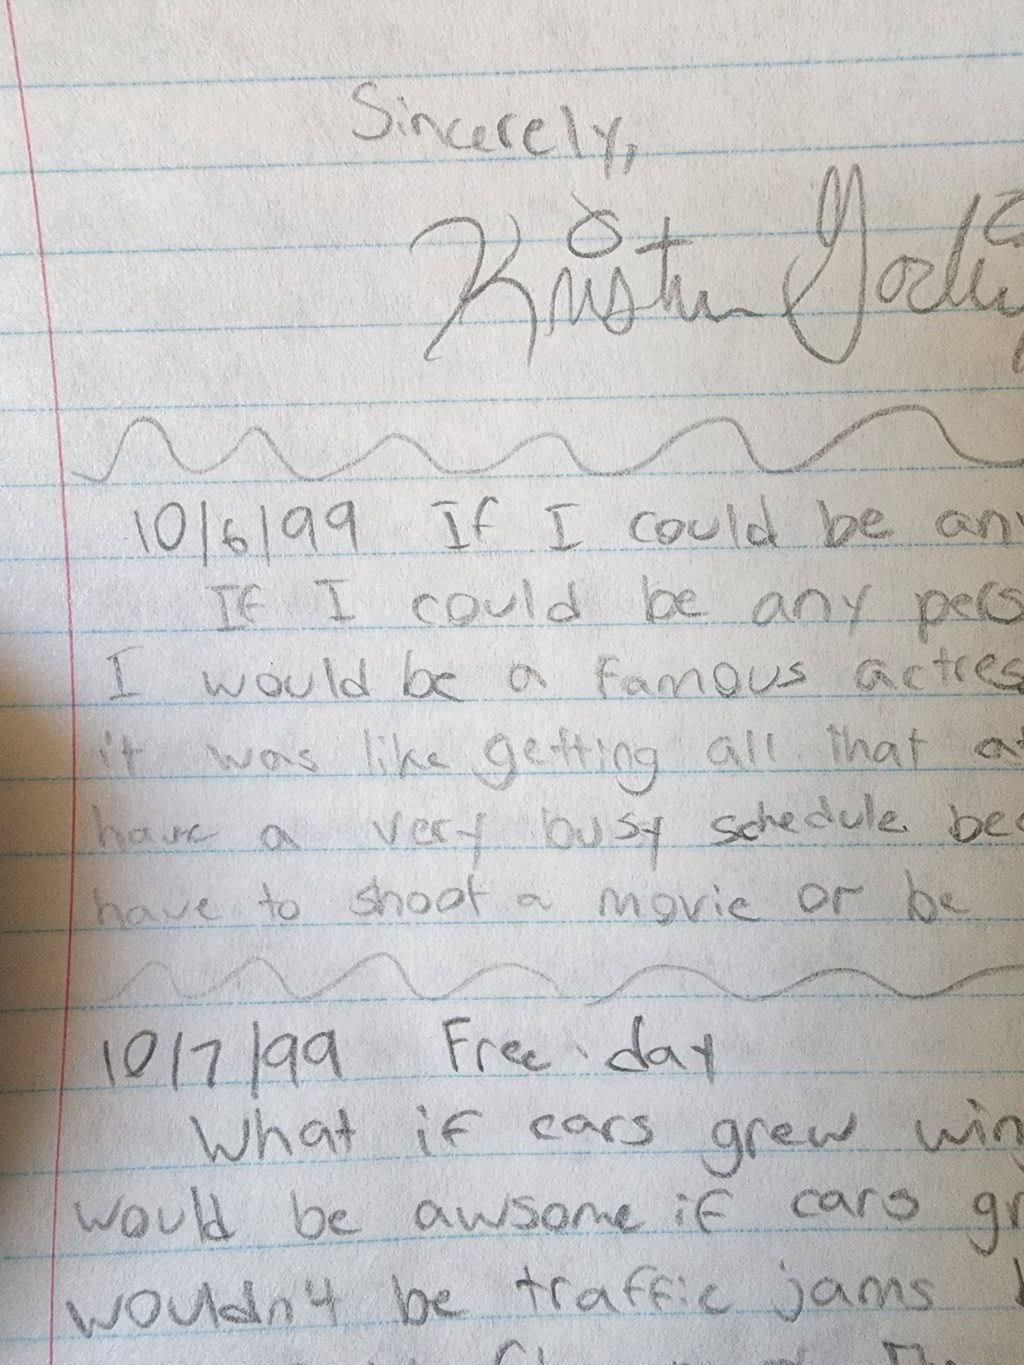 Sincerely,
Kristen
10/6/99 If I could be any
If I could be any pers
I would be a famous actres
it was like getting all that at
have a very busy schedule bec
have to shoot a movie or be
10/7/99 Free day
What if cars grew win
would be awsome if cars gr
wouldn4 be traffic jams